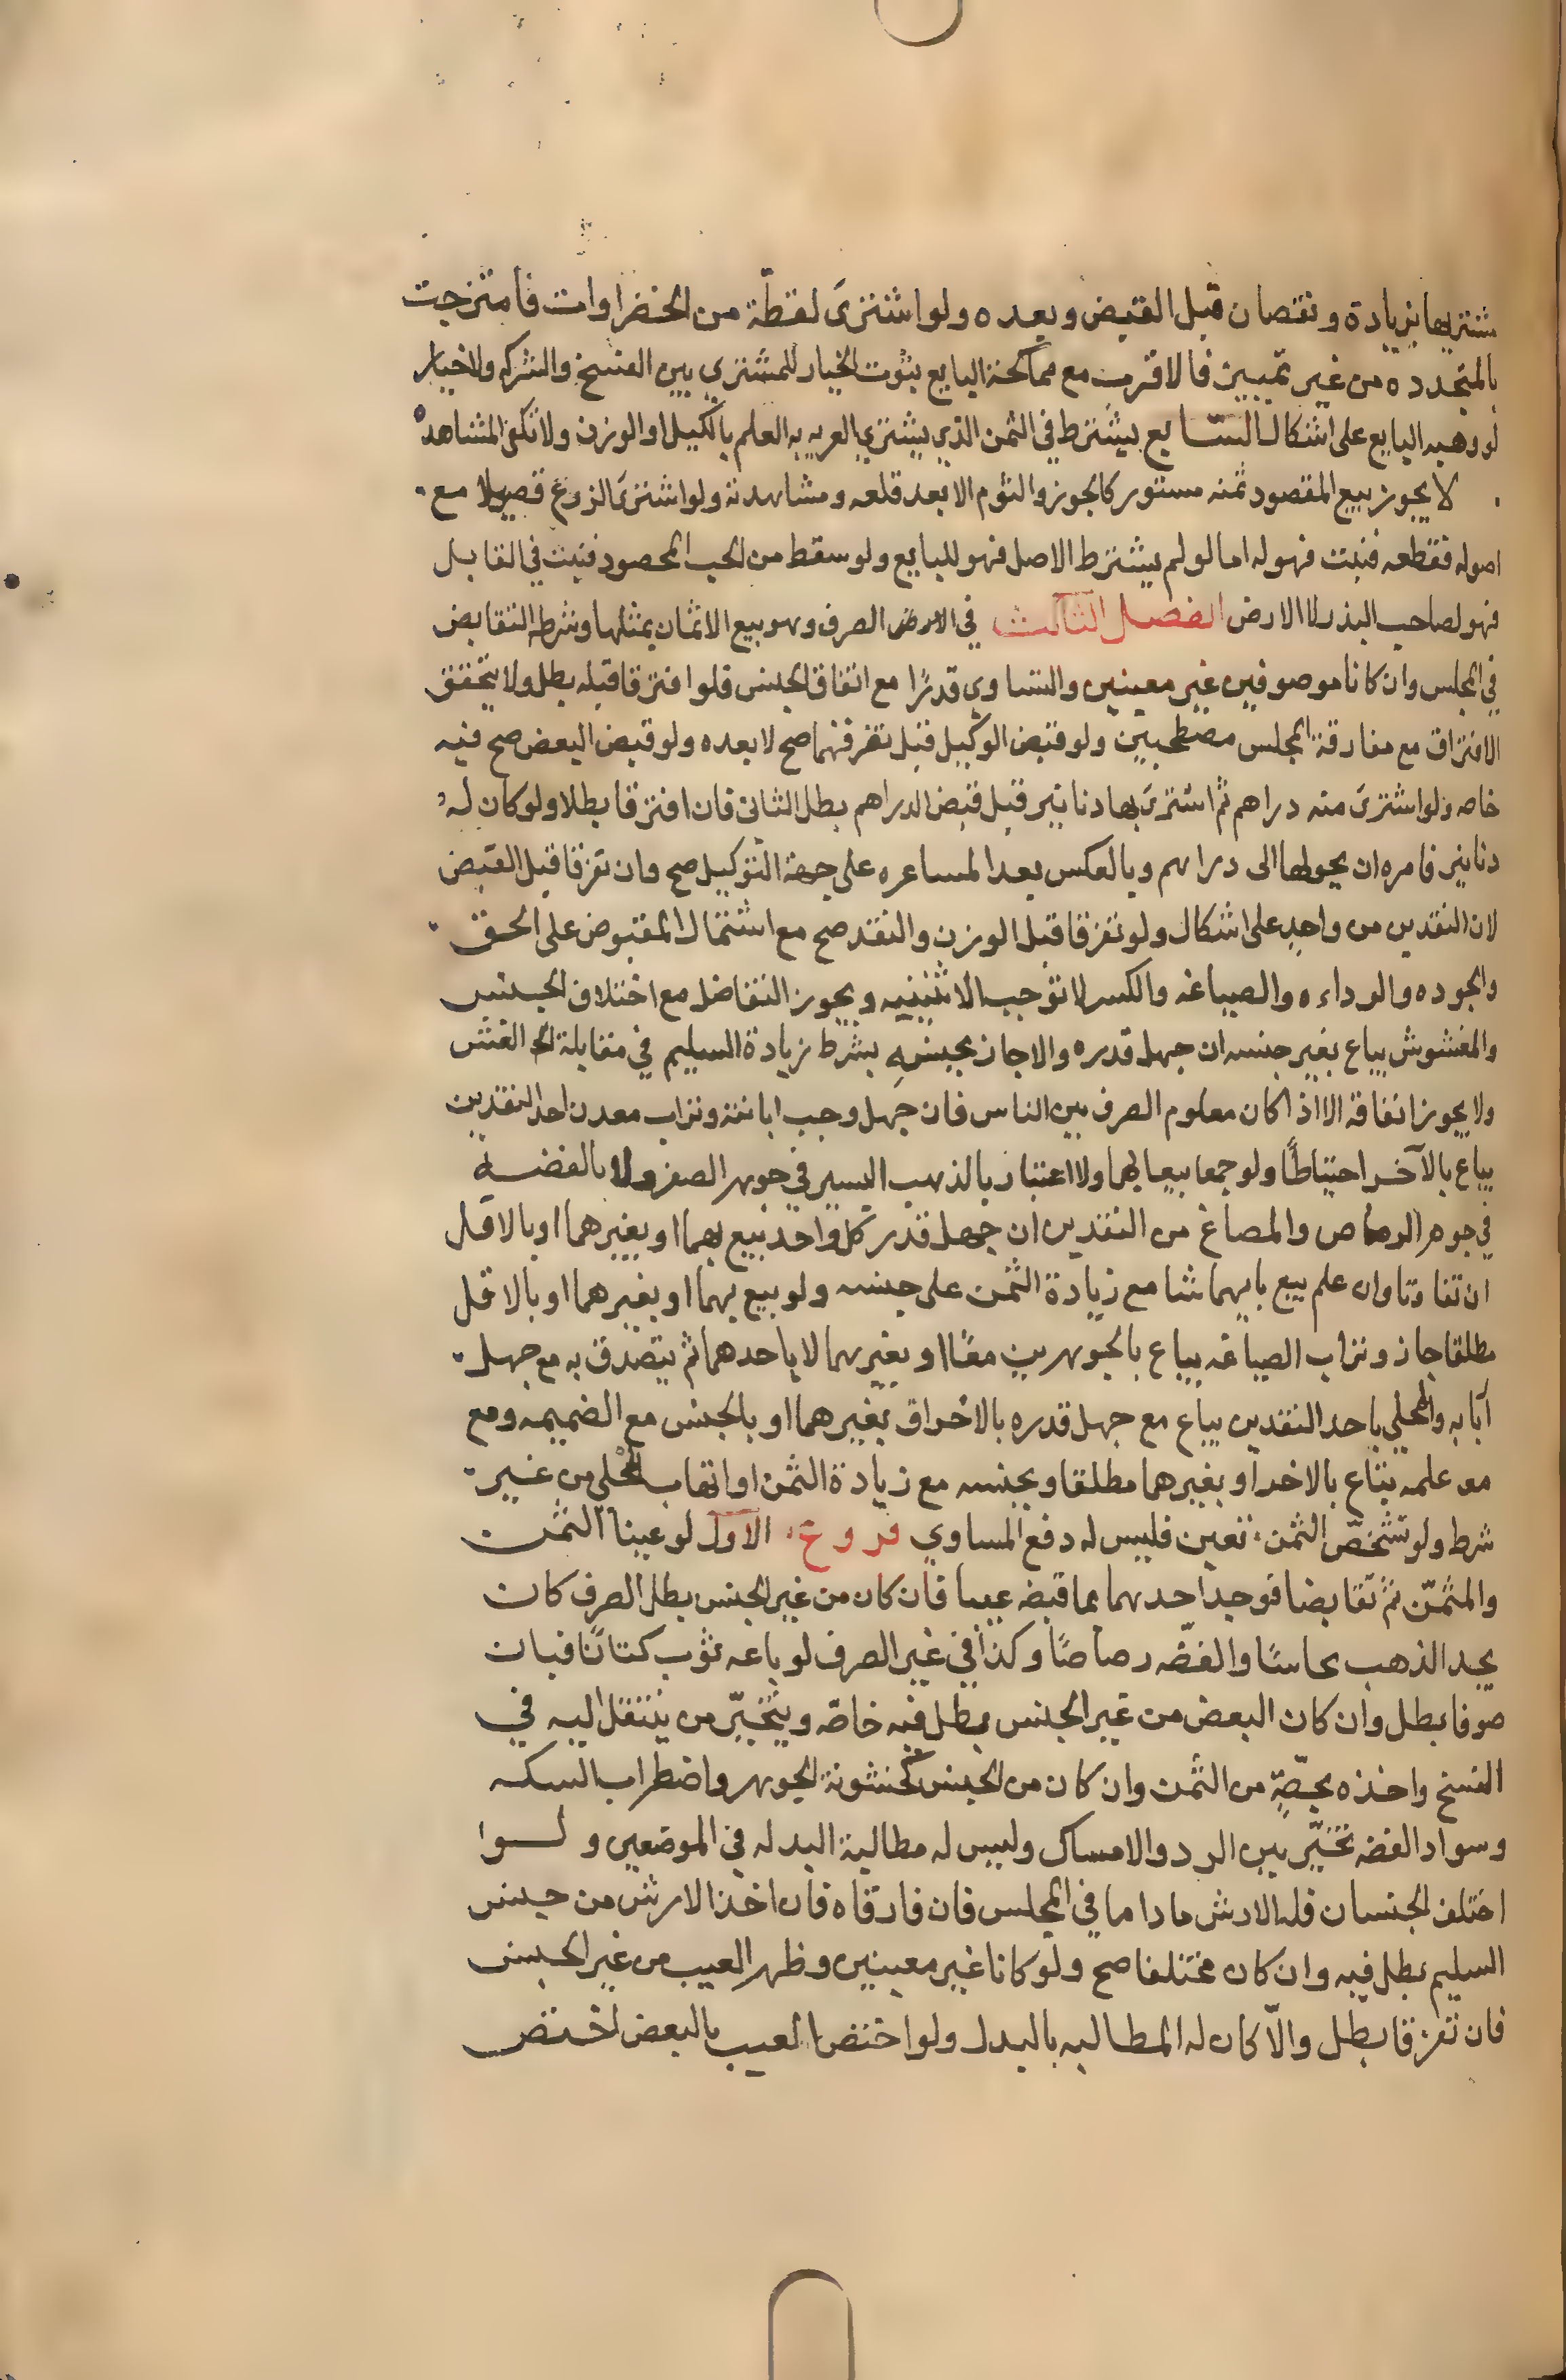 مشتريها بزيادة ونقصان قبل القبض وبعده ولو اشترىَ لقطة من الخضراوات فامتزجت
بالمتجدده من غير تمييز فالاقرب مع مماكحة البايع ثبوت الخيار للمشتري بين الفسخ والشركه ولاخيار
لو وهبه البايع على اشكال السابع يشترط في الثمن الذي يشتري العريه به العلم بالكيل او الوزن ولا تكفي المشاهده
لا يجوز بيع المقصود ثمنه مستور كالجوز والثوم الا بعد قلعه ومشاهدته ولو اشترىَ الزرع قصيلا مع
اصوله فقطعه فنبت فهو له اما لو لم يشترط الاصل فهو للبايع ولو سقط من الحب المحصود فنبت في القابل
فهو لصاحب البذر لا الارض الفصل الثالث في الصرف وهو بيع الاثمان بمثلها وشرطه التقابض
في المجلس وان كانا موصوفين غير معينين والتساوي قدرًا مع اتفاق الجنس فلو افترقا قبله بطل ولا يتحقق
الافتراق مع مفارقة المجلس مصطحبين ولو قبض الوكيل قبل تفرقهما صح لا بعده ولو قبض البعض صح فيه
خاصه ولو اشترىَ منه دراهم ثم اشترىَ بها دنانير قبل قبض الدراهم بطل الثاني فان افترقا بطلا ولو كان له
دنانير فامره ان يحولها الى دراهم وبالعكس بعد المساعره على جهة التوكيل صح وان تفرقا قبل القبض
لان النقدين من واحدٍ على اشكال ولو تفرقا قبل الوزن والنقد صح مع اشتمال المقبوض على الحق
والجوده والرداءه والصياغه والكسر لا توجب الاثنينيه ويجوز التفاضل مع اختلاف الجنسين
والمغشوش يباع بغير جنسه ان جهل قدره والا جاز بجنسِهِ بشرط زيادة السليم في مقابلة الغش
ولا يجوز انفاقه الا اذا كان معلوم الصرف بين الناس فان جهل وجب ابانته وتراب معدن احد النقدين
يباع بالآخر احتياطًا ولو جمعا بيعا بهما ولا اعتبار بالذهب اليسير في جوهر الصفر ولا بالفضة
في جوهر الرصاص والمصاغ من النقدين ان جهل قدر كل واحد بيع بهما او بغيرهما او بالاقل
ان تفاوتا وان علم بيع بايهما شا مع زيادة الثمن على جنسه ولو بيع بهما او بغيرهما او بالاقل
مطلقا جاز وتراب الصياغه يباع بالجوهرين معًا او بغيرهما لا باحدهما ثم يتصدق به مع جهل
اربابه والمحلي باحد النقدين يباع مع جهل قدره بالاخر او بغيرهما او بالجنس مع الضميمه ومع
مع علمه يتباع بالاخر او بغيرهما مطلقا وبجنسه مع زيادة الثمن او اتهاب المحلي من غير
شرط ولو تشخصّ الثمن تعين فليس له دفع المساوي فروع الاول لو عينا الثمن
والمثمّن ثم تقابضا فوجد احدهما بما قبضه عيبا فان كان من غير الجنس بطل الصرف كان
يجد الذهب نحاسًا والفضّه رصاصًا وكذا في غير الصرف لو باعه ثوب كتانًا فبان
صوفا بطل وان كان البعض من غير الجنس بطل فيه خاصّه ويتخيّر من ينتقل اليه في
الفسخ واخذه بحصّةٍ من الثمن وان كان من الجنس كخشونة الجوهر واضطراب السكه
وسواد الفضه تخيّر بين الرد والامساك وليس له مطالبة البدل في الموضعين ولو
اختلف الجنسان فله الارش ما داما في المجلس فان فارقاه فان اخذ الارش من جنس
السليم بطل فيه وان كان مختلفا صح ولو كانا غير معينين وظهر العيب من غير الجنس
فان تفرقا بطل والّا كان له المطالبه بالبدل ولو اختص العيب بالبعض اختص